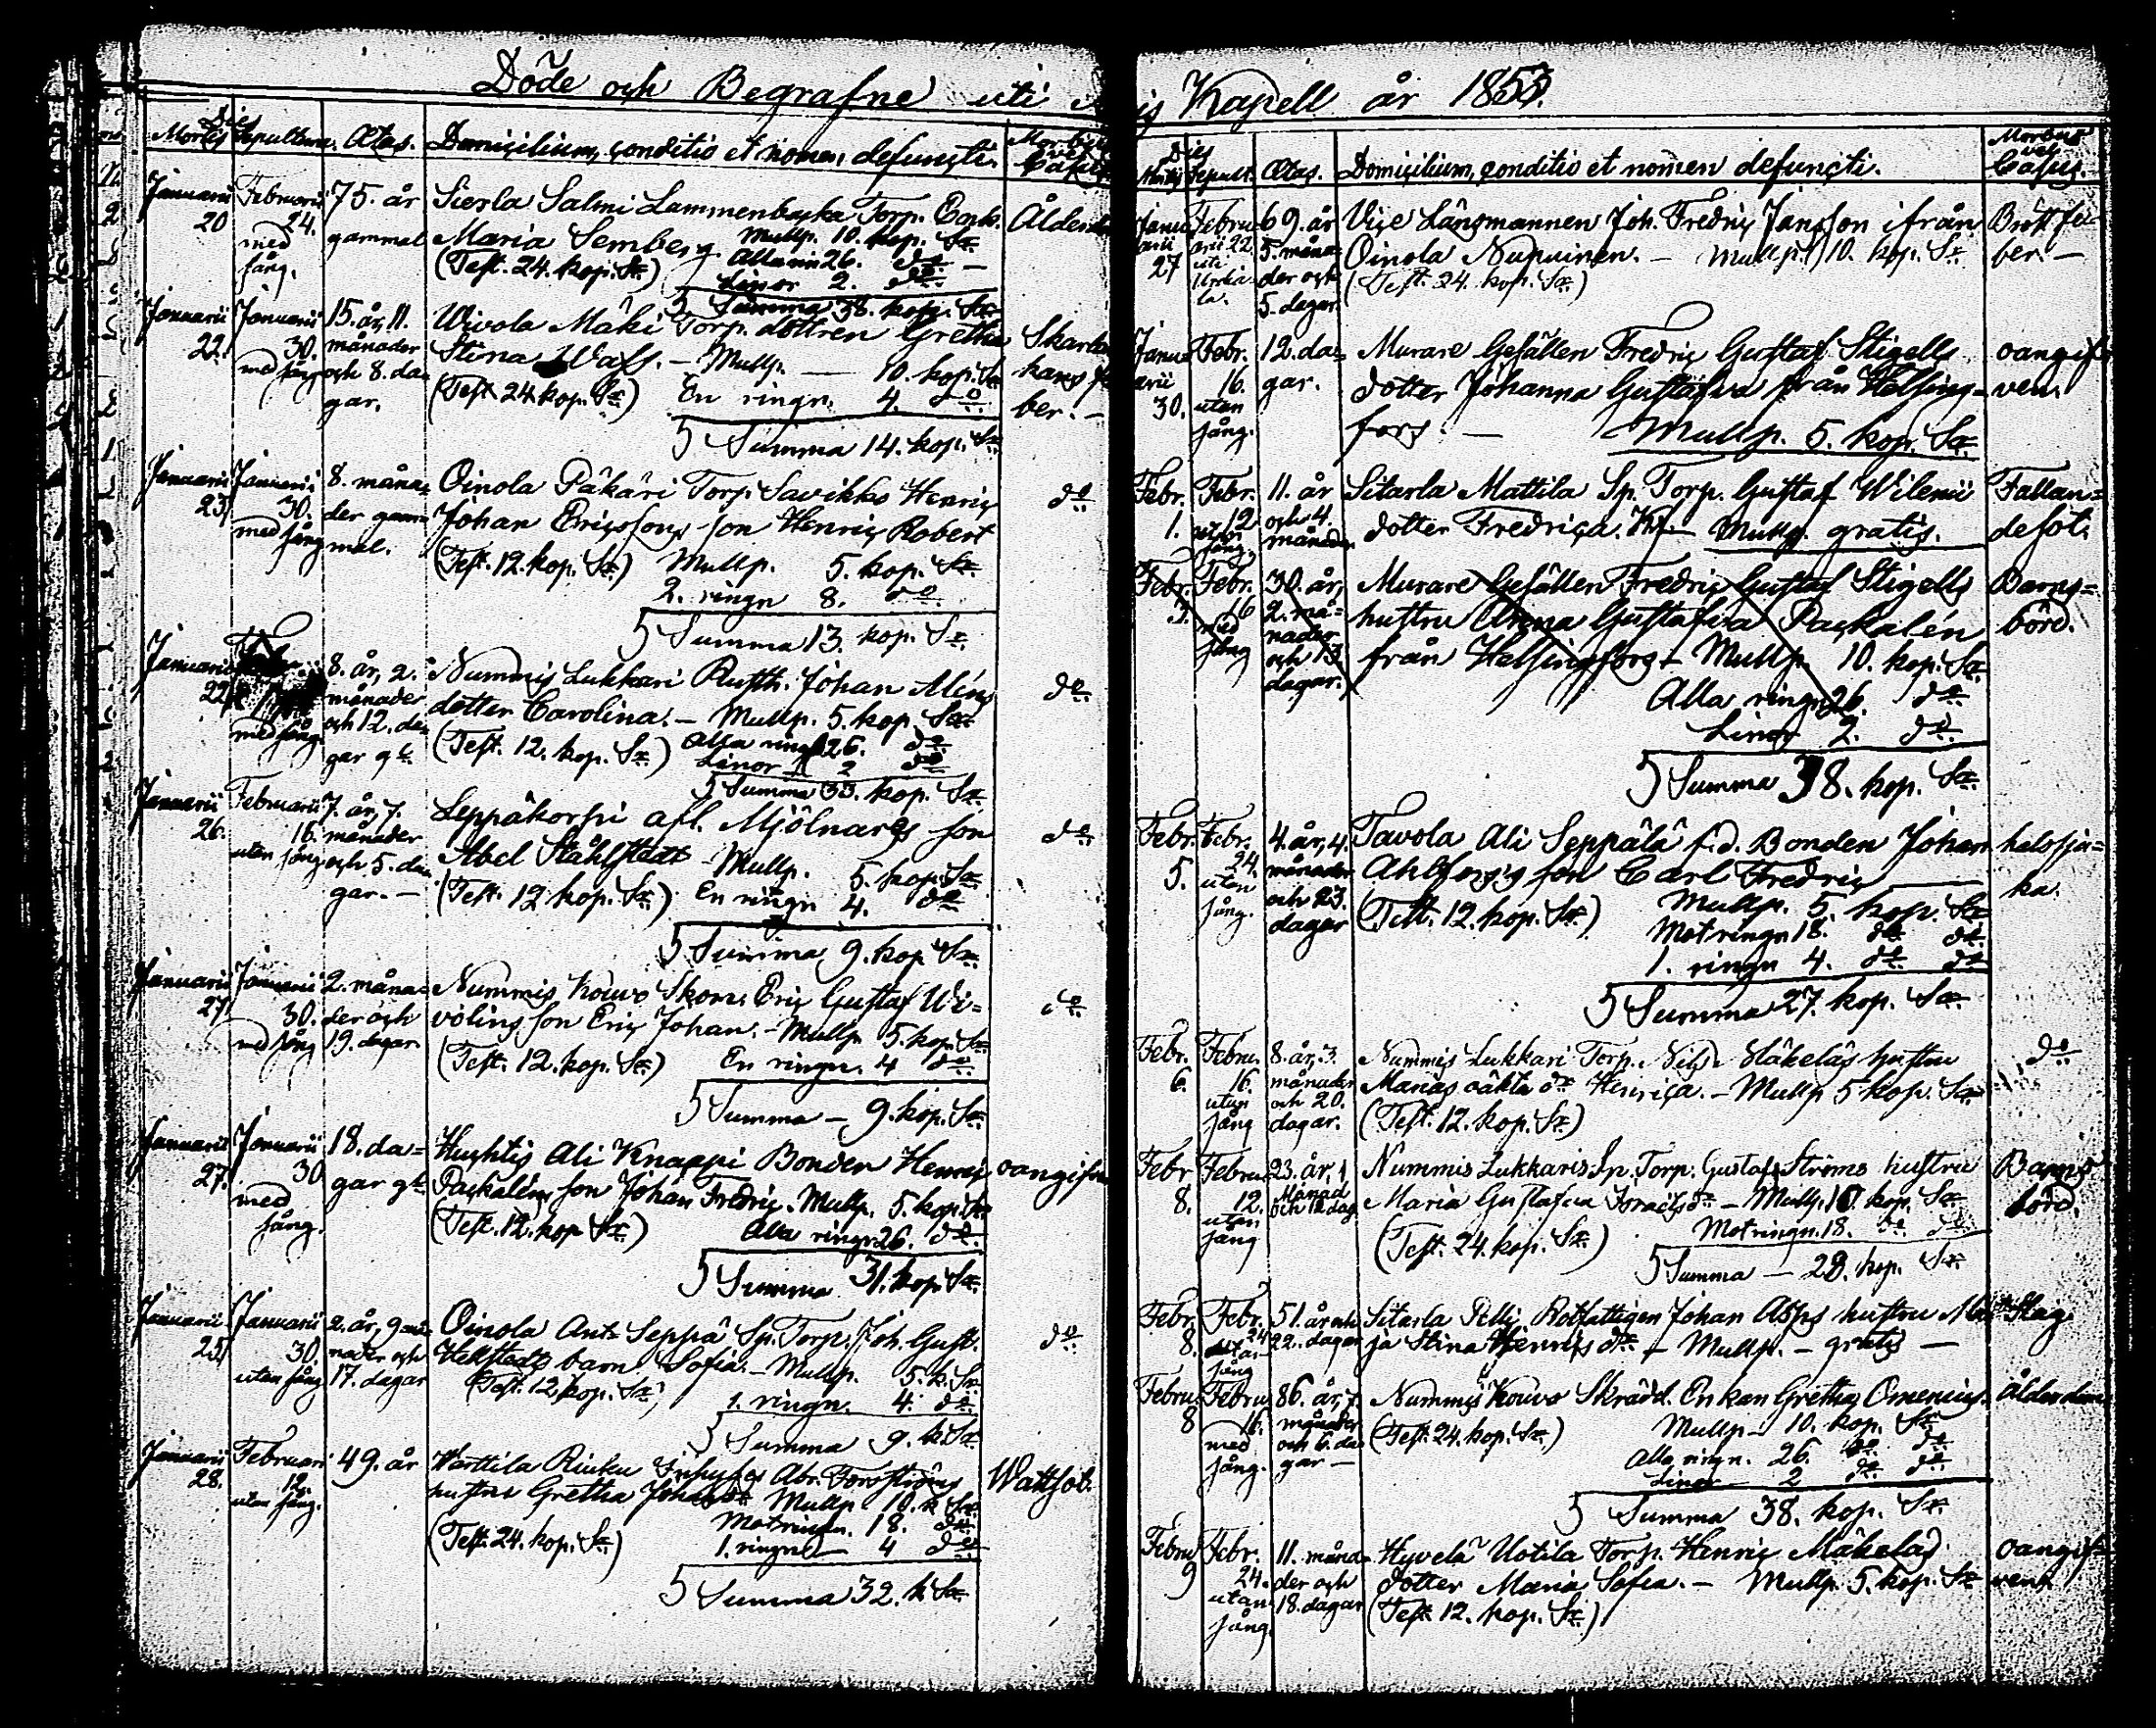 Döde och Begrafne uti
Dies
Mortis Sepulturæ. Ætas. Domicilium, conditio et nomen defuncti. Morbus vel Casus
Januarii 20 Februarii 24. med sång. 75. år gammal
Sierla Salmi Lammenbacka Torp. Enk.
Maria Semberg. Mullp. 10. kop. Sr.
(Test. 24. kop. Sr.) Alla rin 26. do
Linor 2. do
Summa 38. kop. Sr.
Januarii 22. Januarii 30. med sång 15. år, 11. månader och 8. dagar.
Wivola Mäki Torp. dottren Gretha
Stina Wass. – Mullp. — 10. kop. Sr
(Test 24 kop. Sr.) En ringn. 4. do
Summa 14. kop. Sr.
ber. –
Januarii 23. Januarii 30. med sång 8. måna= der gam= mal.
Oinola Päkäri Torp. Savikko Henric
Johan Ericssons son Henric Robert
(Test. 12. kop. Sr.) Mullp. 5. kop. Sr.
2. ringn 8. do
Summa 13. kop. Sr.
do
Januarii 22. med sång 8. år, 2. månader och 12. da gar gl.
Nummis Lukkari Rusth. Johan Aléns
dotter Carolina. – Mullp. 5. kop. Sr.
(Test. 12. kop. Sr.) Alla ringn 26. do
Linor 2 do
Summa 33. kop. Sr.
do
Januarii 26. Februarii 16. utan sång 7. år, 7. månader och 5. da gar. –
Leppäkorpi afl. Mjölnares son
Abel Ståhlstedt Mullp. 5. kop. Sr.
(Test. 12 kop. Sr.) En ringn 4. do
Summa 9. kop Sr.
do
Januarii 27. Januarii 30. med sång 2. måna= der och 19. dagar
Nummis Kouvo Skom. Eric Gustaf Wi=
volins son Eric Johan. – Mullp 5. kop. Sr
(Test. 12. kop. Sr.) En ringn. 4 do
Summa – 9. kop. Sr.
do
Januarii 27. Januarii 30 med sång. 18. da= gar gl.
Huhtis Ali Knappi Bonden Henric
Packaléns son Johan Fredric. Mullp. 5. kop. Sr.
(Test. 12. kop Sr.) Alla ringn 26. do
Summa 31. kop Sr.
Januarii 25. Januarii 30. utan sång 2. år, 9 må nader och 17. dagar
Oinola Ant Seppä Sp. Torp. Joh. Gust.
Hellstedts barn Sofia. – Mullp. 5. k. Sr.
(Test. 12 kop. Sr.) 1. ringn. 4. do
Summa 9. k. Sr.
do
Januarii 28. Februari 12. utan sång. 49. år
Warttila Rieku Inhyses Abr. Forsströms
hustru Gretha Mullp 10. k Sr.
Motringn. 18. do
(Test. 24. kop. Sr.) 1. ringn – 4 do
Summa 32. k Sr
Wattsot.
is Kapell år 1853.
Dies
Mortis Sepult. Ætas. Domicilium, conditio et nomen defuncti. Morbus vel Casus.
Janu arii 27 Febru arii 22. uti 69. år 5. måna= der och 5. dagar
Vice Länsmannen Joh. Fredric Jansson ifrån
Oinola Nupuinen. – Mullp. 10. kop. Sr.
(Test. 24. kop. Sr.)
Bröstfe= ber. –
Janu= arii 30. Febr. 16. utan sång. 12. da= gar.
Murare Gesällen Fredric Gustaf Stigells
dotter Johanna Gustafva från Helsing=
fors. – Mullp. 5. kop. Sr.
Febr. 1. Febr. 12 utan sång. 11. år och 4. månader
Sitarla Mattila Sp. Torp. Gustaf Wilenii
dotter Fredrica. Mullp. gratis.
Fallan= desot.
Febr. 3. Febr. 16 med sång 30. år, 2. må= nader och 13 dagar.
Murare Gesällen Fredric Gustaf Stigells
hustru Anna Gustafva Packalén
från Helsingfors – Mullp. 10. kop. Sr.
Alla ringn 26. do
Linor 2. do
Summa 38. kop. Sr.
Barns= börd.
Febr. 5. Febr. 24. utan sång. 4. år, 4. månader och 23. dagar
Tavola Ali Seppälä f.d. Bonden Johan
Ahlfors's son Carl Fredric —
(Test. 12. kop. Sr.) Mullp. 5. kop. Sr
Motringn 18. do do
1. ringn 4. do do
Summa 27. kop. Sr.
halssju= ka.
Febr. 6. Febru. 16. utan sång 8. år, 3. månader och 20. dagar.
Nummis Lukkari Torp. hustru
Marias oäkta dr Henrica. – Mullp 5 kop. Sr.
(Test. 12. kop. Sr.)
do
Febr 8. Febru 12. utan sång 23. år, 1 månad och 12 dag
Nummis Lukkaris Sp. Torp. Gustaf Ströms hustru
Maria Gustafva – Mullp. 10. kop. Sr.
Motringn. 18. do do
(Test. 24. kop. Sr.) Summa – 28. kop. Sr.
Barns börd.
Febr. 8. Febr. 24 utan sång 51. år och 22. dagar
Sitarla Pelli Rotfattigen Johan hustru
ja Stina Henrics dr – Mullp. – gratis –
Slag
Febru. 8 Febru 16. med sång. 86. år, 7. månader och 6. da gar –
Nummis Kouvo Skrädd. Enkan Gretha Omenius.
(Test. 24. kop. Sr.) Mullp – 10. kop. Sr
Alla ringn. 26. do do
Linor – 2 do do
Summa 38. kop. Sr.
Ålderdom
Febru 9 Febr. 24. utan sång. 11. måna der och 18. dagar
Hyvelä Uotila Torp. Henric Mäkeläs
dotter Maria Sofia. – Mullp. 5. kop. Sr
(Test. 12. kop. Sr.)